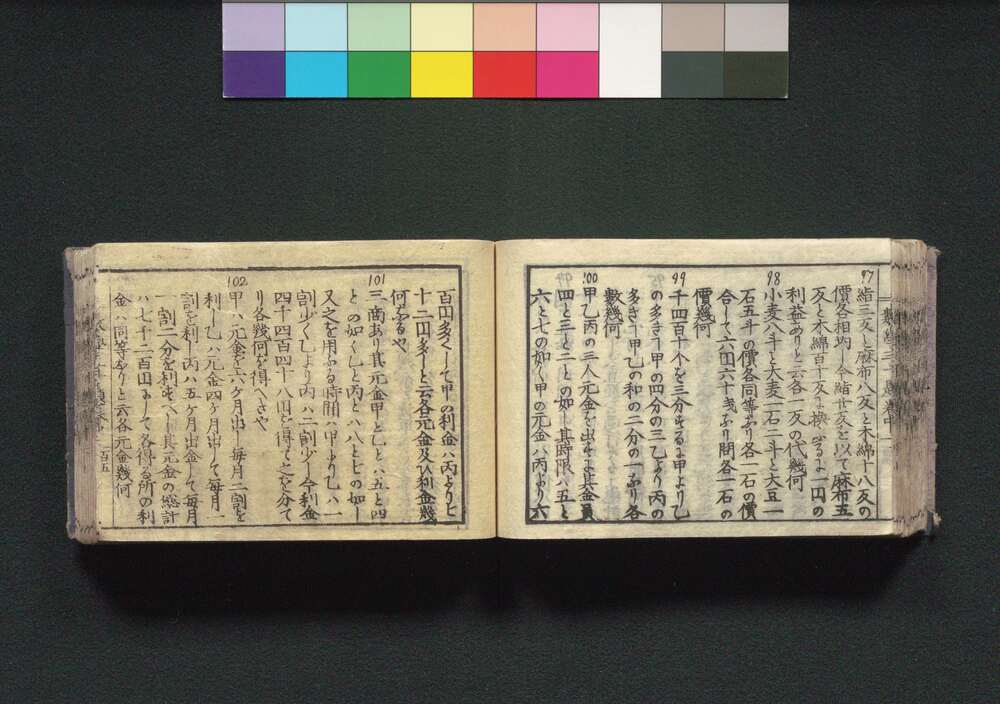 97
絹三反と麻布八反と木綿十八反の
價各相均し今絹十反を以て麻布五
反と木綿百十反に換ずるに一円の
利益ありと云各一反の代幾何
98
小麦八斗と大麦一石二斗と大豆一
石五斗の價各同等なり各一石の價
合して六円六十銭なり問各一石の
價幾何
99
千四百十个を三分するに甲より乙
の多き〻甲の四分の三乙より丙の
多き〻甲乙の和の二分の一なり各
數幾何
100
甲乙丙の三人元金を出すに其金員
四と三と二との如し其時限ハ五と
六と七の如く甲の元金ハ丙より六
百円多くして甲の利金ハ丙より七
十二円多しと云各元金及ひ利金幾
何なるや
101
三商あり其元金甲と乙とハ五と四
との如く乙と丙とハ八と七の如し
又之を用ふる時間ハ甲より乙ハ一
割少く乙より丙ハ二割少し今利金
四千四百四十八円を得て之を分て
り各幾何を得へきや
102
甲ハ元金を六ケ月出し毎月二割を
利し乙ハ元金四ケ月出して毎月一
割を利し丙ハ五ケ月出金して毎月
一割二分を利すへし其元金の総計
ハ七千二百円にして各得る所の利
金ハ同等なりと云各元金幾何
百五